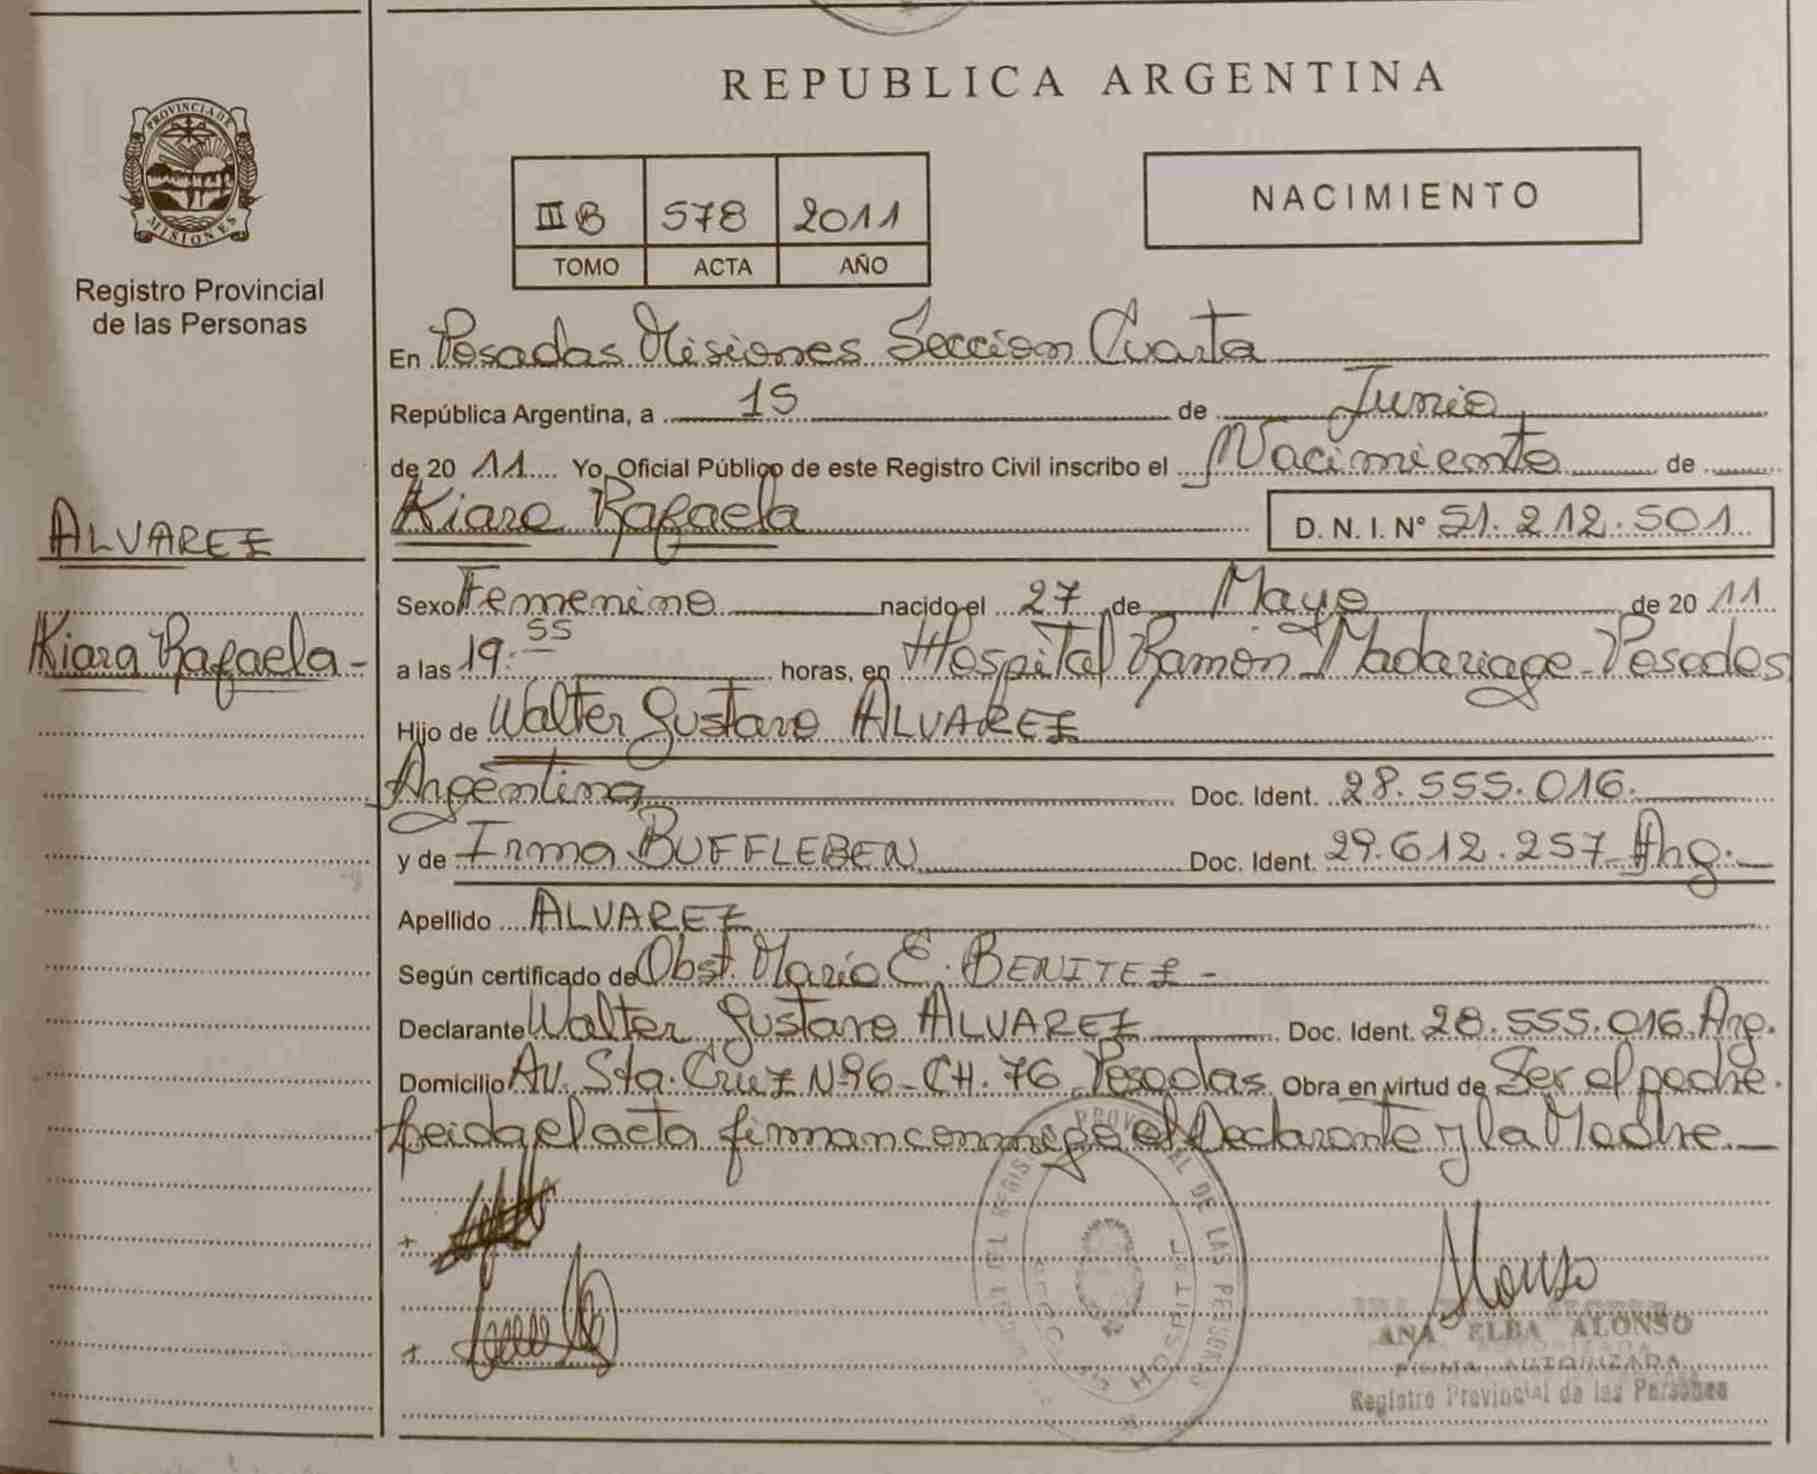 REPUBLICA ARGENTINA
PROVINCIA DE
MISIONES
Registro Provincial
de las Personas
ALVAREZ
Kiara Rafaela -
NACIMIENTO
III B 578 2011
TOMO ACTA AÑO
En Posadas Misiones Seccion Cuarta
República Argentina, a 15 de Junio
de 20 11 Yo, Oficial Público de este Registro Civil inscribo el Nacimiento de
Kiara Rafaela D. N. I. Nº 51.212.501
Sexo Femenino nacido el 27 de Mayo de 20 11
a las 19:55 horas, en Hospital Ramón Madariaga - Posadas
Hijo de Walter Gustavo ALVAREZ
Argentino Doc. Ident. 28.555.016.
y de Irma BUFFLEBEN Doc. Ident. 29.612.257 Arg.
Apellido ALVAREZ
Según certificado de Obst. María E. BENITEZ -
Declarante Walter Gustavo ALVAREZ Doc. Ident. 28.555.016 Arg.
Domicilio AV. Sta. Cruz Nº96 - CH. 76 Posadas Obra en virtud de Ser el padre.
Leida el acta firman conmigo el Declarante y la Madre.
Alonso
ANA ELBA ALONSO
FIRMA AUTORIZADA
Registro Provincial de las Personas